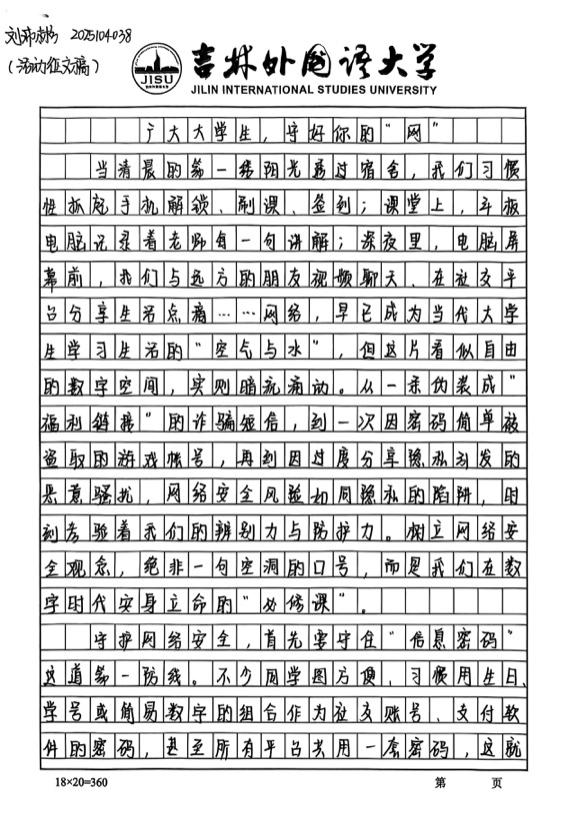 2025104038
(活动征文稿)
JISU
吉林外国语大学
JILIN INTERNATIONAL STUDIES UNIVERSITY
广大大学生，守好你的“网”
当清晨的第一缕阳光透过宿舍，我们习惯
性抓起手机解锁、刷课、签到；课堂上，斗板
电脑记录着老师每一句讲解；深夜里，电脑屏
幕前，我们与远方的朋友视频聊天、在社交平
台分享生活点滴……网络，早已成为当代大学
生学习生活的“空气与水”，但这片看似自由
的数字空间，实则暗流涌动。从一条伪装成“
福利链接”的诈骗短信，到一次因密码简单被
盗取的游戏帐号，再到因过度分享隐私引发的
恶意骚扰，网络安全风险如同隐私的陷阱，时
刻考验着我们的辨别力与防护力。树立网络安
全观念，绝非一句空洞的口号，而是我们在数
字时代安身立命的“必修课”。
守护网络安全，首先要守住“信息密码”
这道第一防线。不少同学图方便，习惯用生日、
学号或简易数字的组合作为社交账号、支付软
件的密码，甚至所有平台共用一套密码，这就
18×20=360
第 页